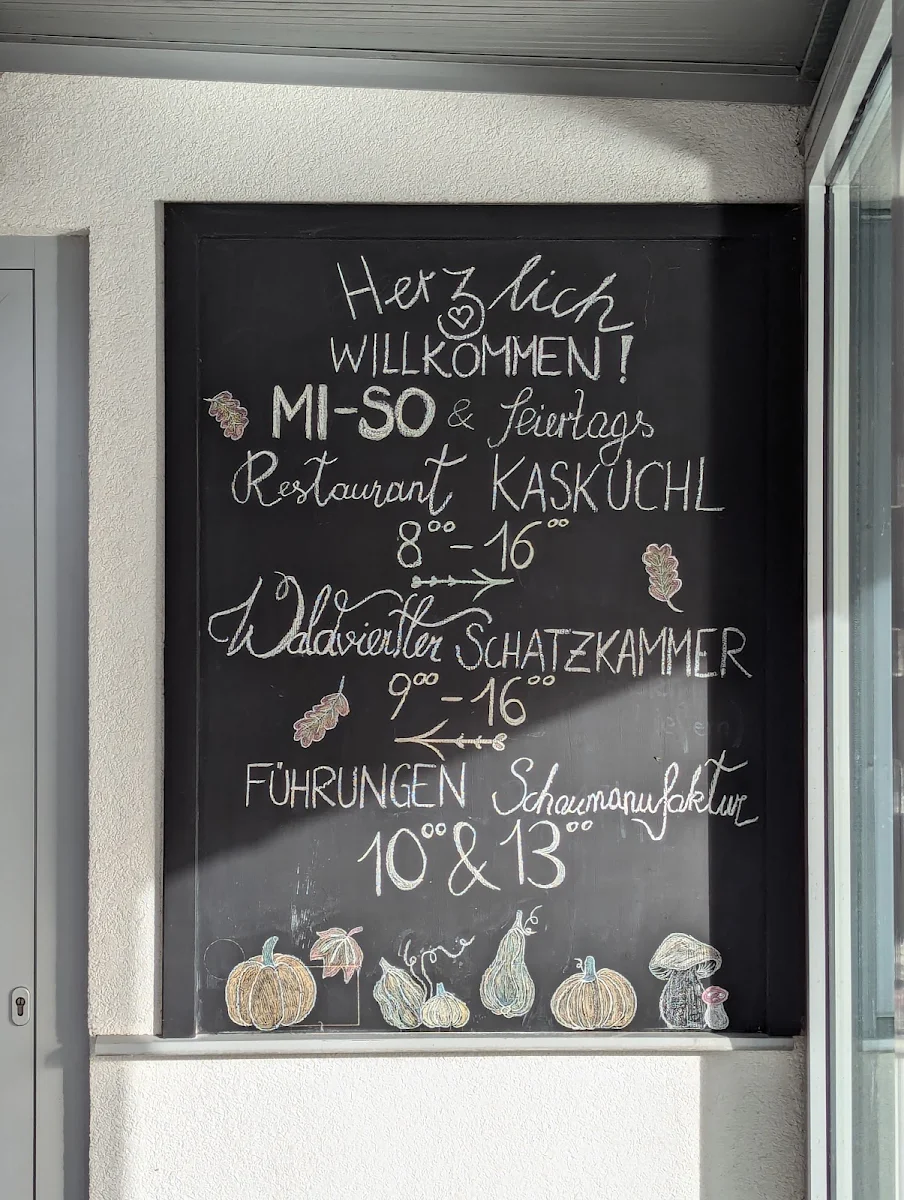 Herzlich
WILLKOMMEN!
MI-SO & Feiertags
Restaurant KASKUCHL
8⁰⁰ - 16⁰⁰
Waldviertler SCHATZKAMMER
9⁰⁰ - 16⁰⁰
FÜHRUNGEN Schaumanufaktur
10⁰⁰ & 13⁰⁰